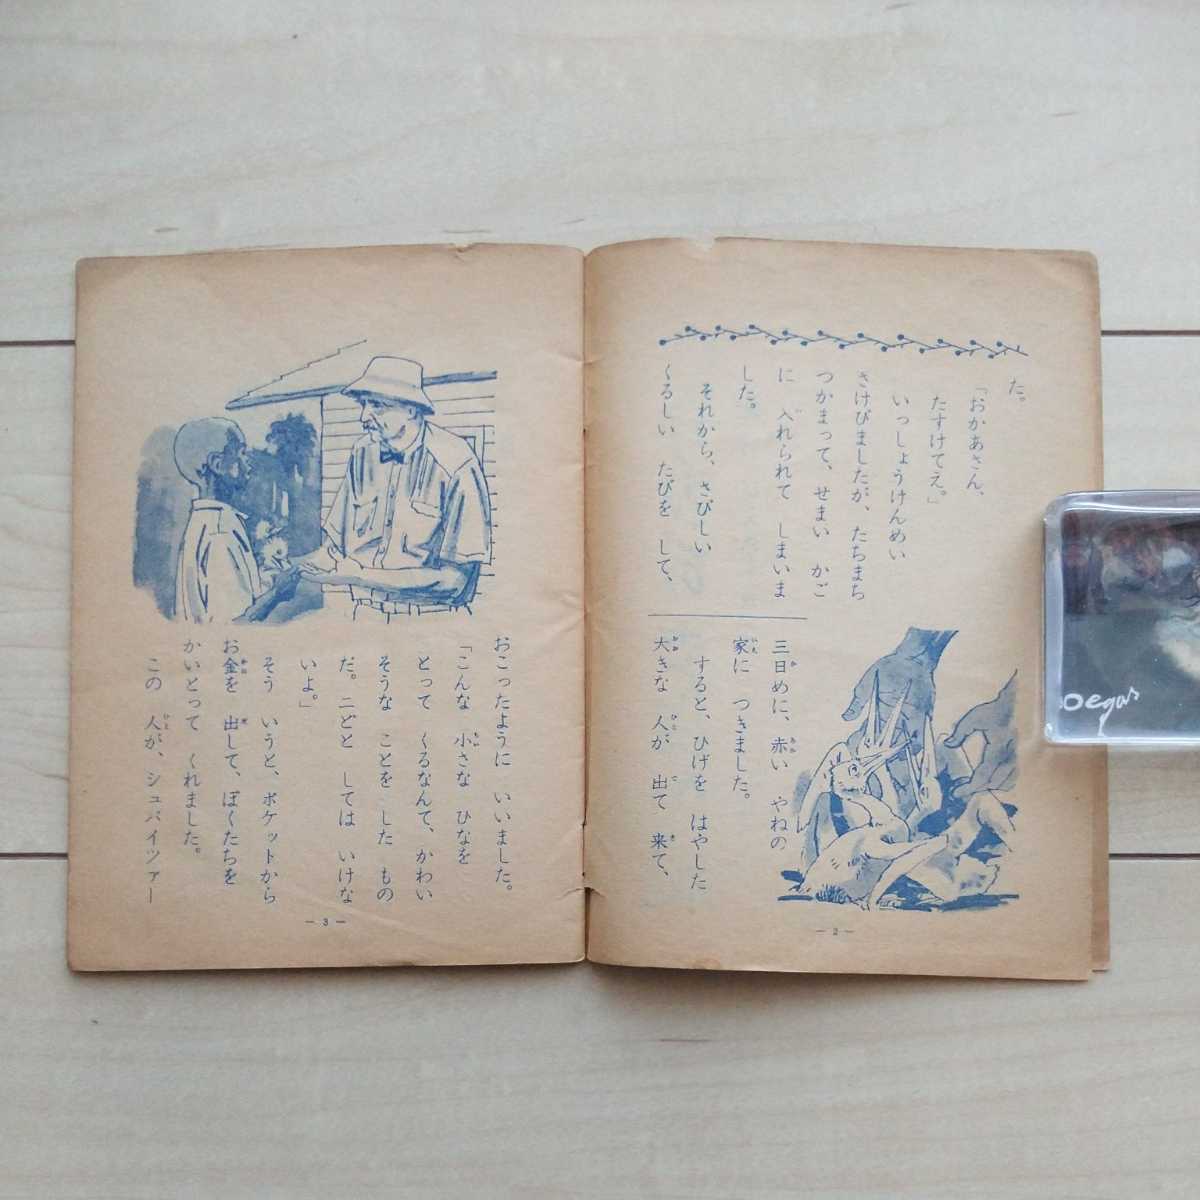 た。
「おかあさん、
たすけてえ。」
いっしょうけんめい
さけびましたが、たちまち
つかまって、せまい かご
に 入れられて しまいま
した。
それから、さびしい
くるしい たびを して、
三日めに、赤い やねの
家に つきました。
すると、ひげを はやした
大きな 人が 出て 来て、
— 2 —
おこったように いいました。
「こんな 小さな ひなを
とって くるなんて、かわい
そうな ことを した もの
だ。二どと しては いけな
いよ。」
そう いうと、ポケットから
お金を 出して、ぼくたちを
かいとって くれました。
この 人が、シュバイツァー
— 3 —
Degas